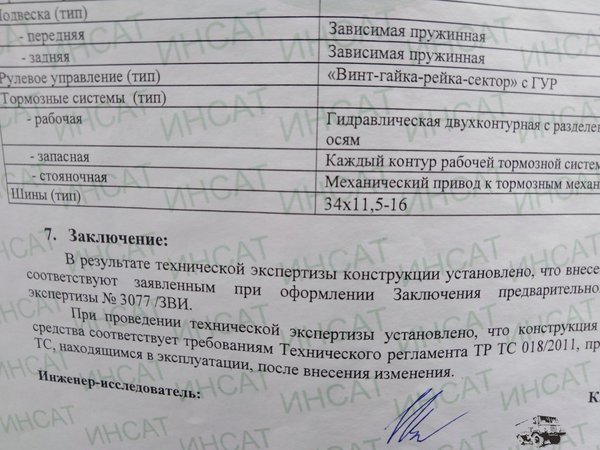 Подвеска (тип)
- передняя
Зависимая пружинная
- задняя
Зависимая пружинная
Рулевое управление (тип)
«Винт-гайка-рейка-сектор» с ГУР
Тормозные системы (тип)
- рабочая
Гидравлическая двухконтурная с разделе
осям
- запасная
Каждый контур рабочей тормозной систем
- стояночная
Механический привод к тормозным механ
Шины (тип)
34х11,5-16
7. Заключение:
В результате технической экспертизы конструкции установлено, что внесе
соответствуют заявленным при оформлении Заключения предварительно
экспертизы № 3077 /ЗВИ.
При проведении технической экспертизы установлено, что конструкция
средства соответствует требованиям Технического регламента ТР ТС 018/2011, пр
ТС, находящимся в эксплуатации, после внесения изменения.
Инженер-исследователь:
К
ИНСАТ